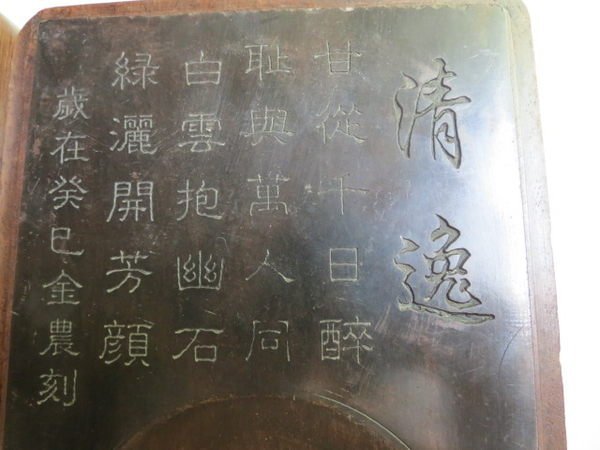 清逸
甘從千日醉
耻與萬人同
白雲抱幽石
緑灑開芳顔
歲在癸巳金農刻